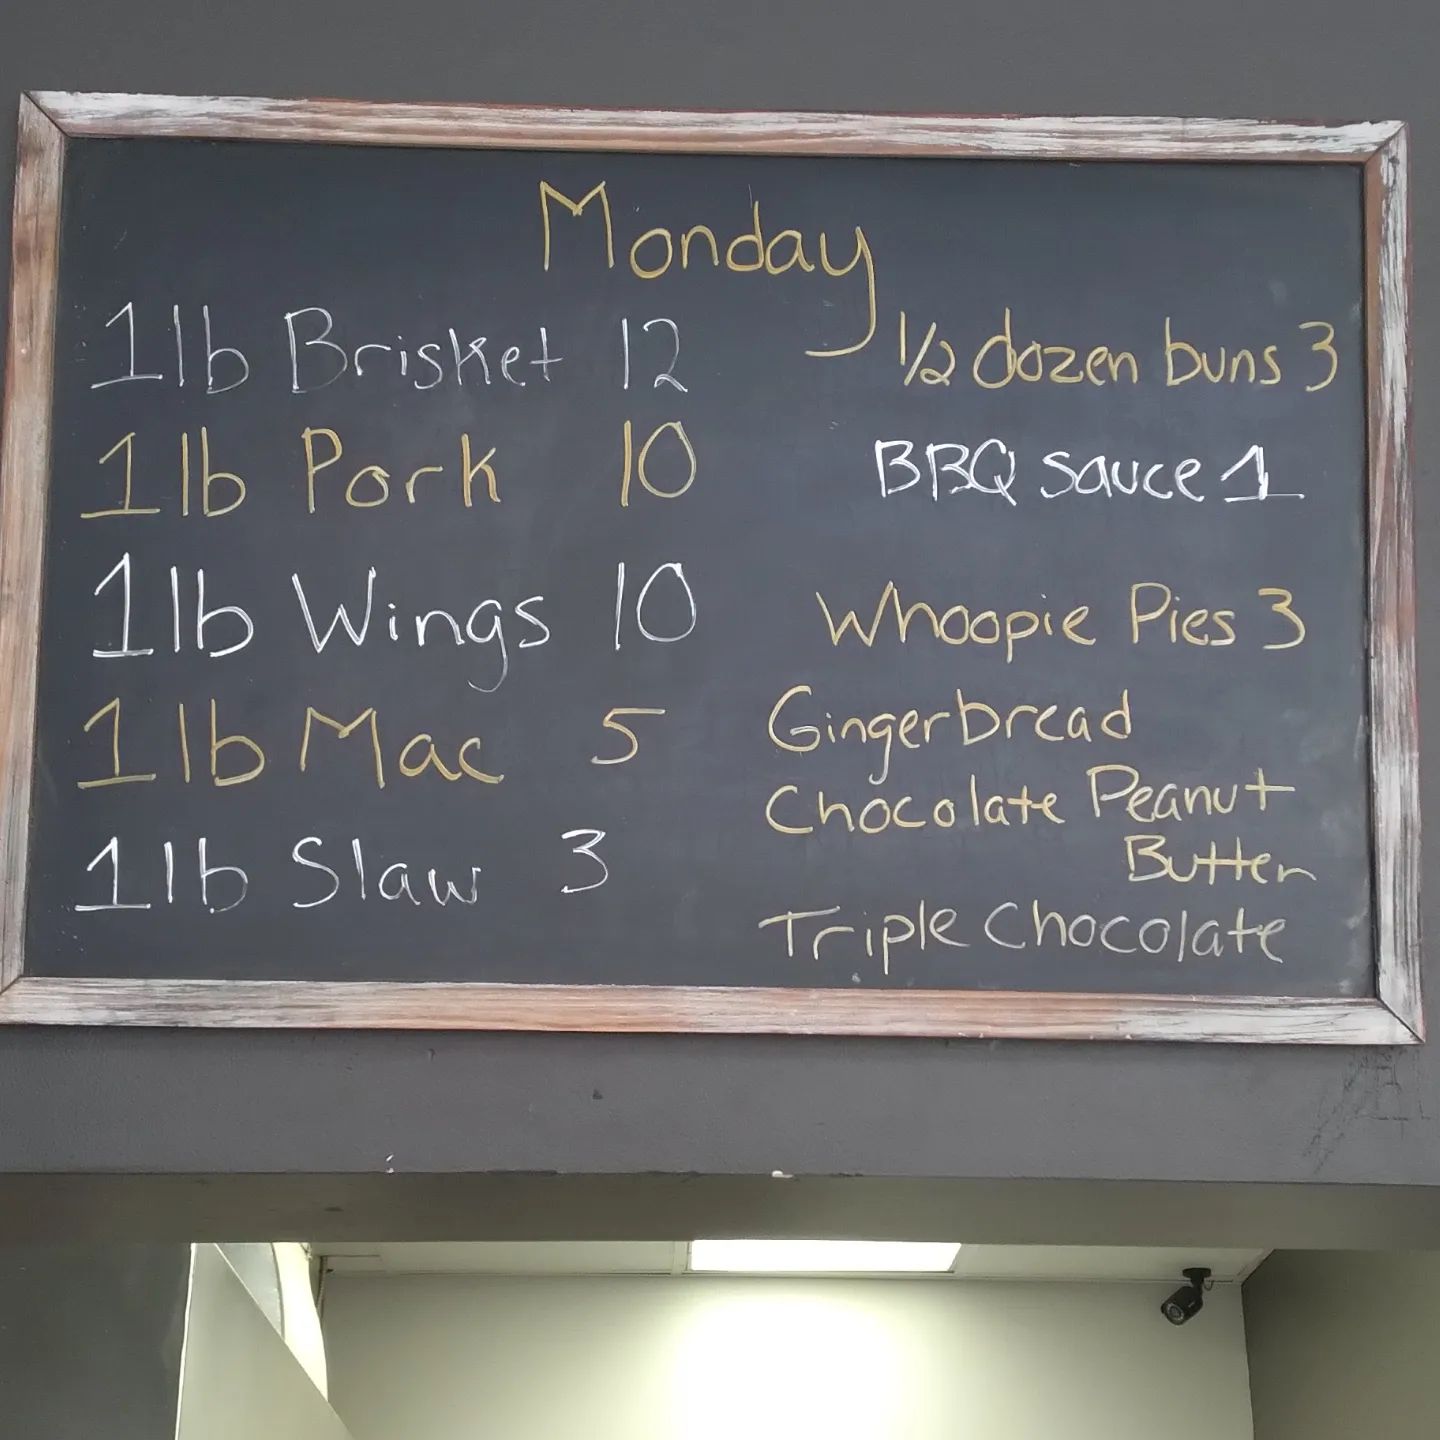 Monday
1lb Brisket 12
1lb Pork 10
1lb Wings 10
1lb Mac 5
1lb Slaw 3
1/2 dozen buns 3
BBQ Sauce 1
Whoopie Pies 3
Gingerbread
Chocolate Peanut
Butter
Triple Chocolate